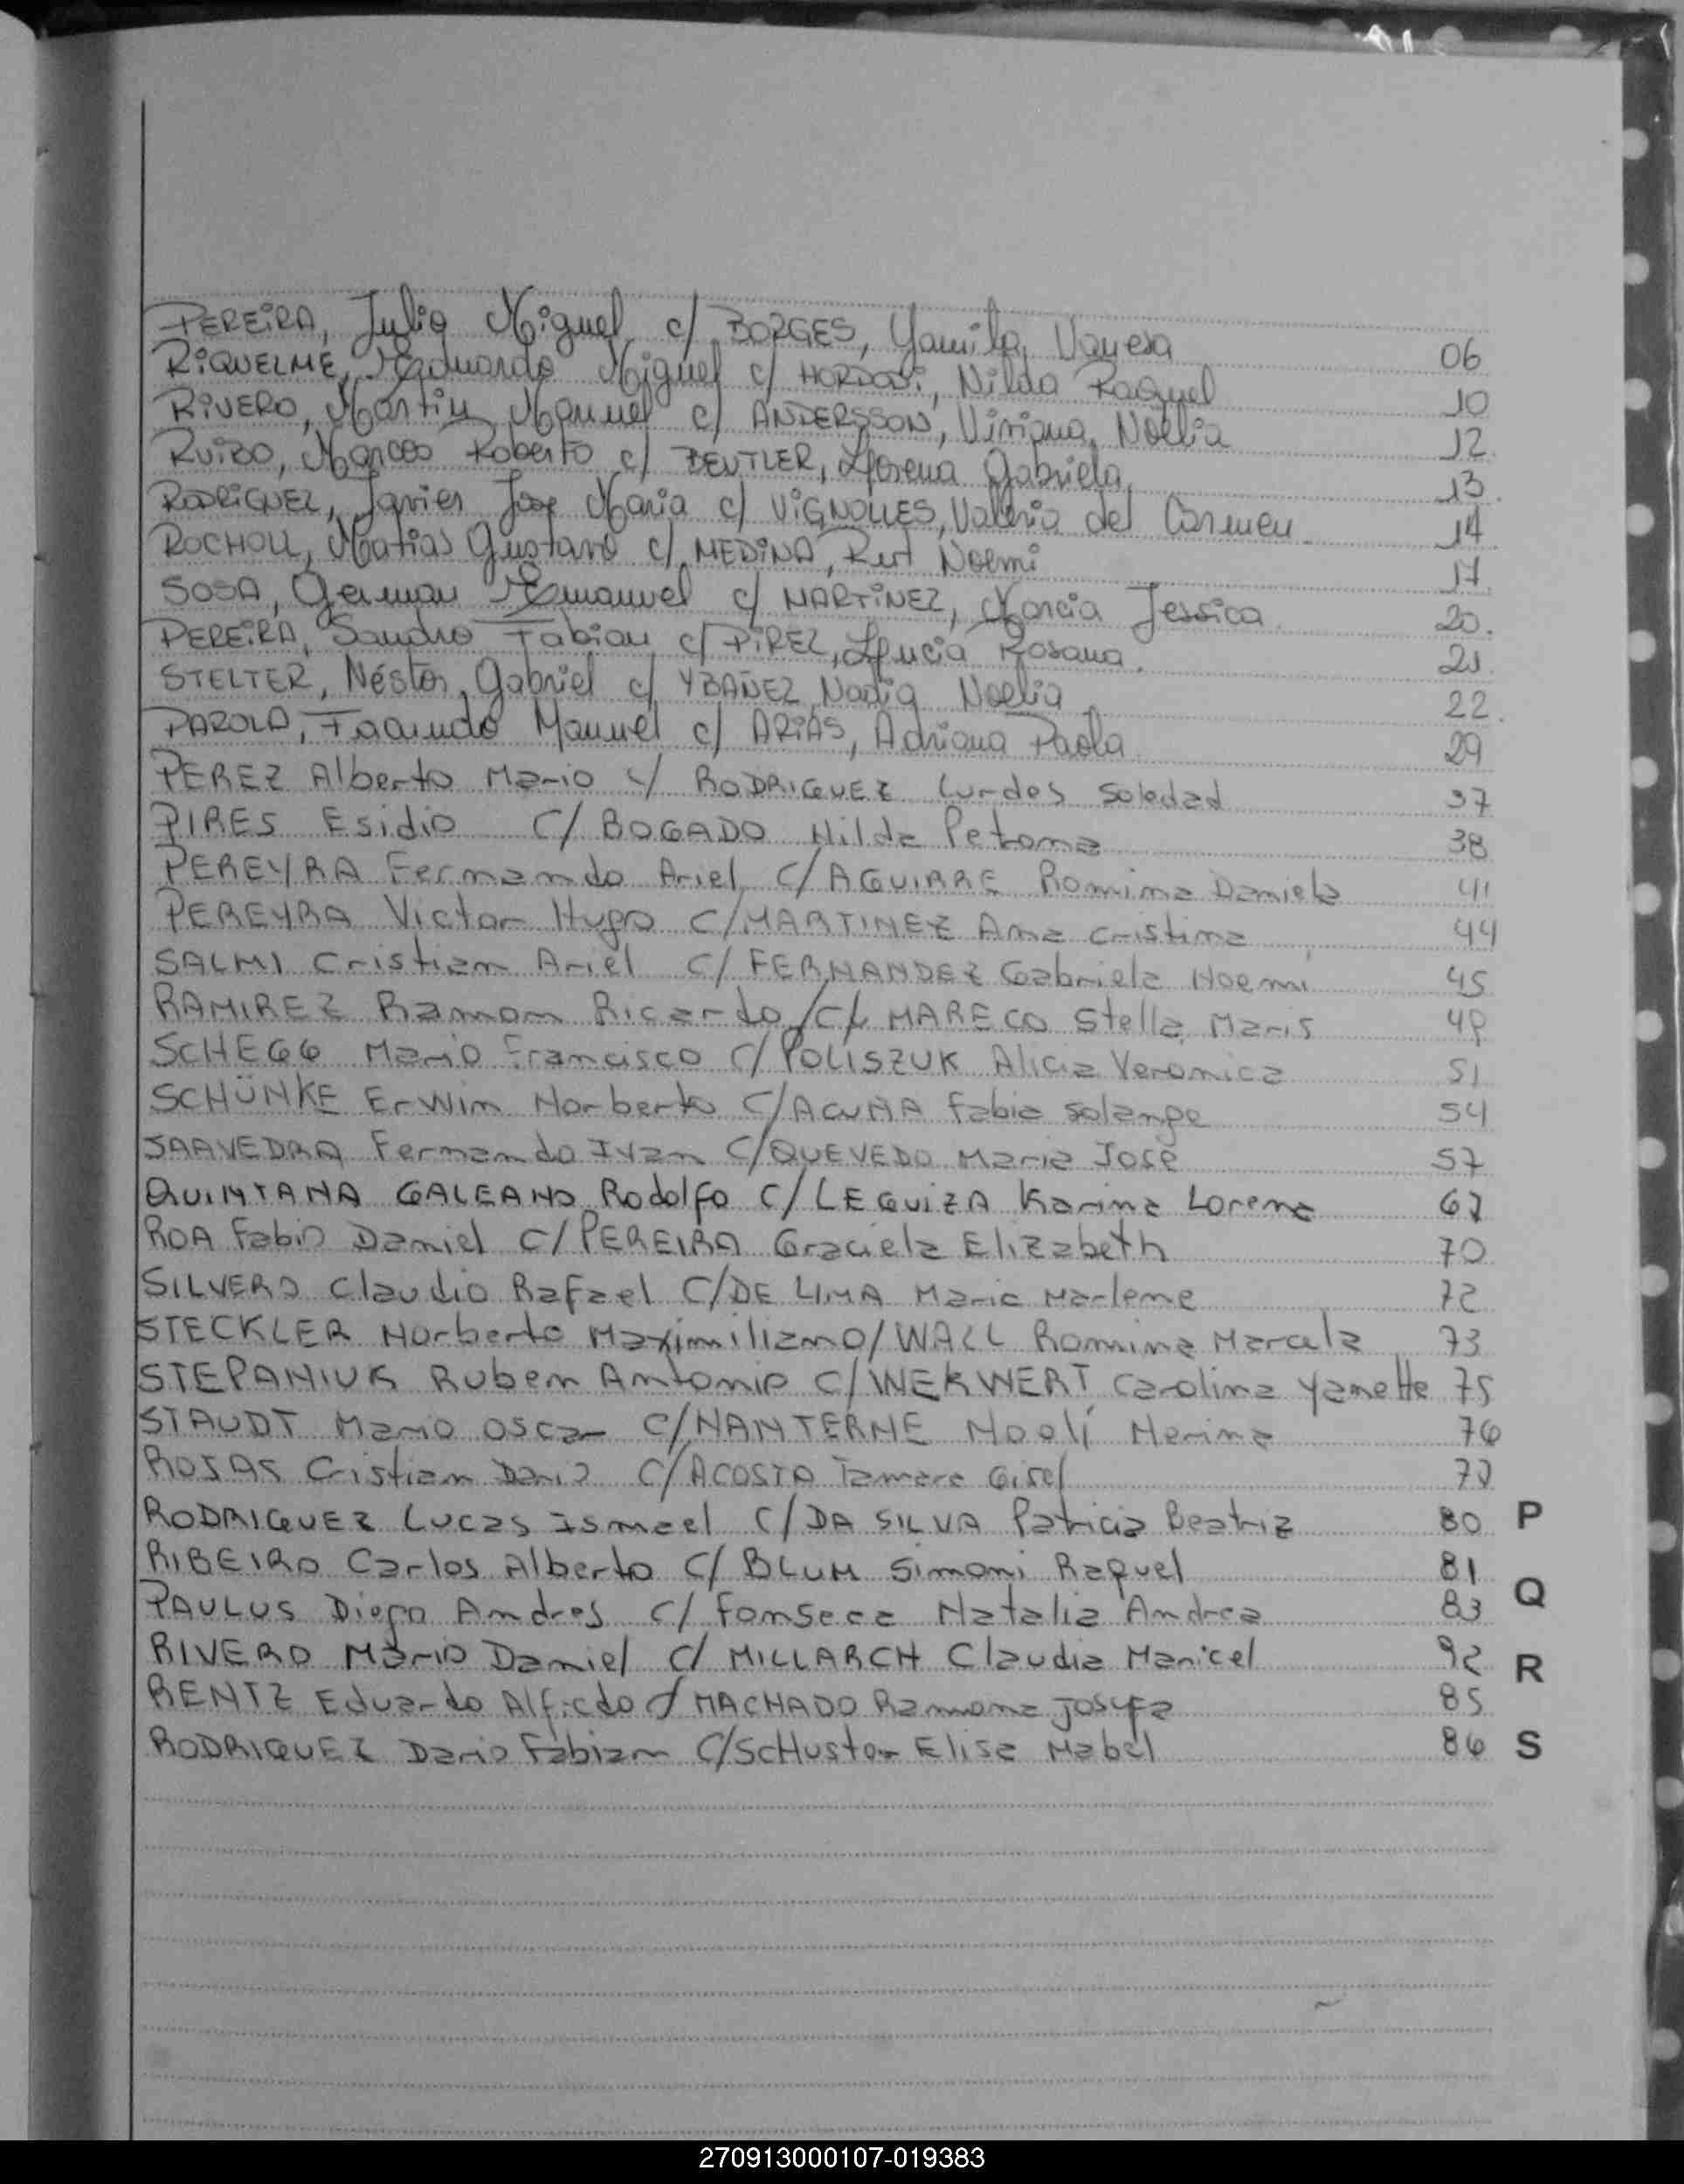 PEREIRA, Julio Miguel c/ BORGES, Yamila Vanesa 06
RIQUELME, Eduardo Miguel c/ Nilda Raquel 10
RIVERO, Martin Manuel c/ ANDERSSON, Viviana Noelia 12
Marcos Roberto c/ BEUTLER, Lorena Gabriela 13
RODRIGUEZ, Javier Jose Maria c/ VIGNOLLES, Valeria del Carmen 14
ROCHOLL, Matias Gustavo c/ MEDINA, Rut Noemi 17
SOSA, German Emanuel c/ MARTINEZ, Marcia Jessica 20.
PEREIRA, Sandro Fabian c/ PIREZ, Lucia Rosana. 21.
STELTER, Néstor Gabriel c/ YBAÑEZ, Nadia Noelia 22.
PAROLA, Facundo Manuel c/ ARIAS, Adriana Paola 29
PEREZ Alberto Mario c/ RODRIGUEZ Lurdes Soledad 37
PIRES Esidio C/ BOGADO Nilda Petrona 38
PEREYRA Fernando Ariel C/ AGUIRRE Romina Daniela 41
PEREYRA Victor Hugo C/ MARTINEZ Ana Cristina 44
SALMI Cristian Ariel C/ FERNANDEZ Gabriela Noemi 45
RAMIREZ Ramon Ricardo C/ MARECO Stella Maris
SCHEGG Mario Francisco C/ POLISZUK Alicia Veronica 51
SCHÜNKE Erwin Norberto C/ ACUÑA Fabia Solange 54
SAAVEDRA Fernando Ivan C/ QUEVEDO Maria José 57
QUINTANA GALEANO Rodolfo C/ LEGUIZA Karina Lorena
ROA Fabio Daniel C/ PEREIRA Graciela Elizabeth 70
SILVERO Claudio Rafael C/ DE LIMA Maria Marlene 72
STECKLER Norberto Maximiliano/ WALL Romina Marcela 73
STEPANIUK Ruben Antonio C/ WEKWERT Carolina Yanette 75
STAUDT Mario Oscar C/ NANTERNE Noelí Merina 76
ROJAS Cristian C/ ACOSTA Tamara Gisel
RODRIGUEZ Lucas Ismael C/ DA SILVA Patricia Beatriz 80 P
RIBEIRO Carlos Alberto C/ BLUM Simoni Raquel 81
PAULUS Diego Andres C/ Fonseca Natalia Andrea 83 Q
RIVERO Mario Daniel C/ MILLARCH Claudia Maricel 92 R
RENTZ Eduardo Alfredo C/ MACHADO Ramona 85
RODRIGUEZ Dario Fabian C/ SCHuster Elisa Mabel 86 S
270913000107-019383